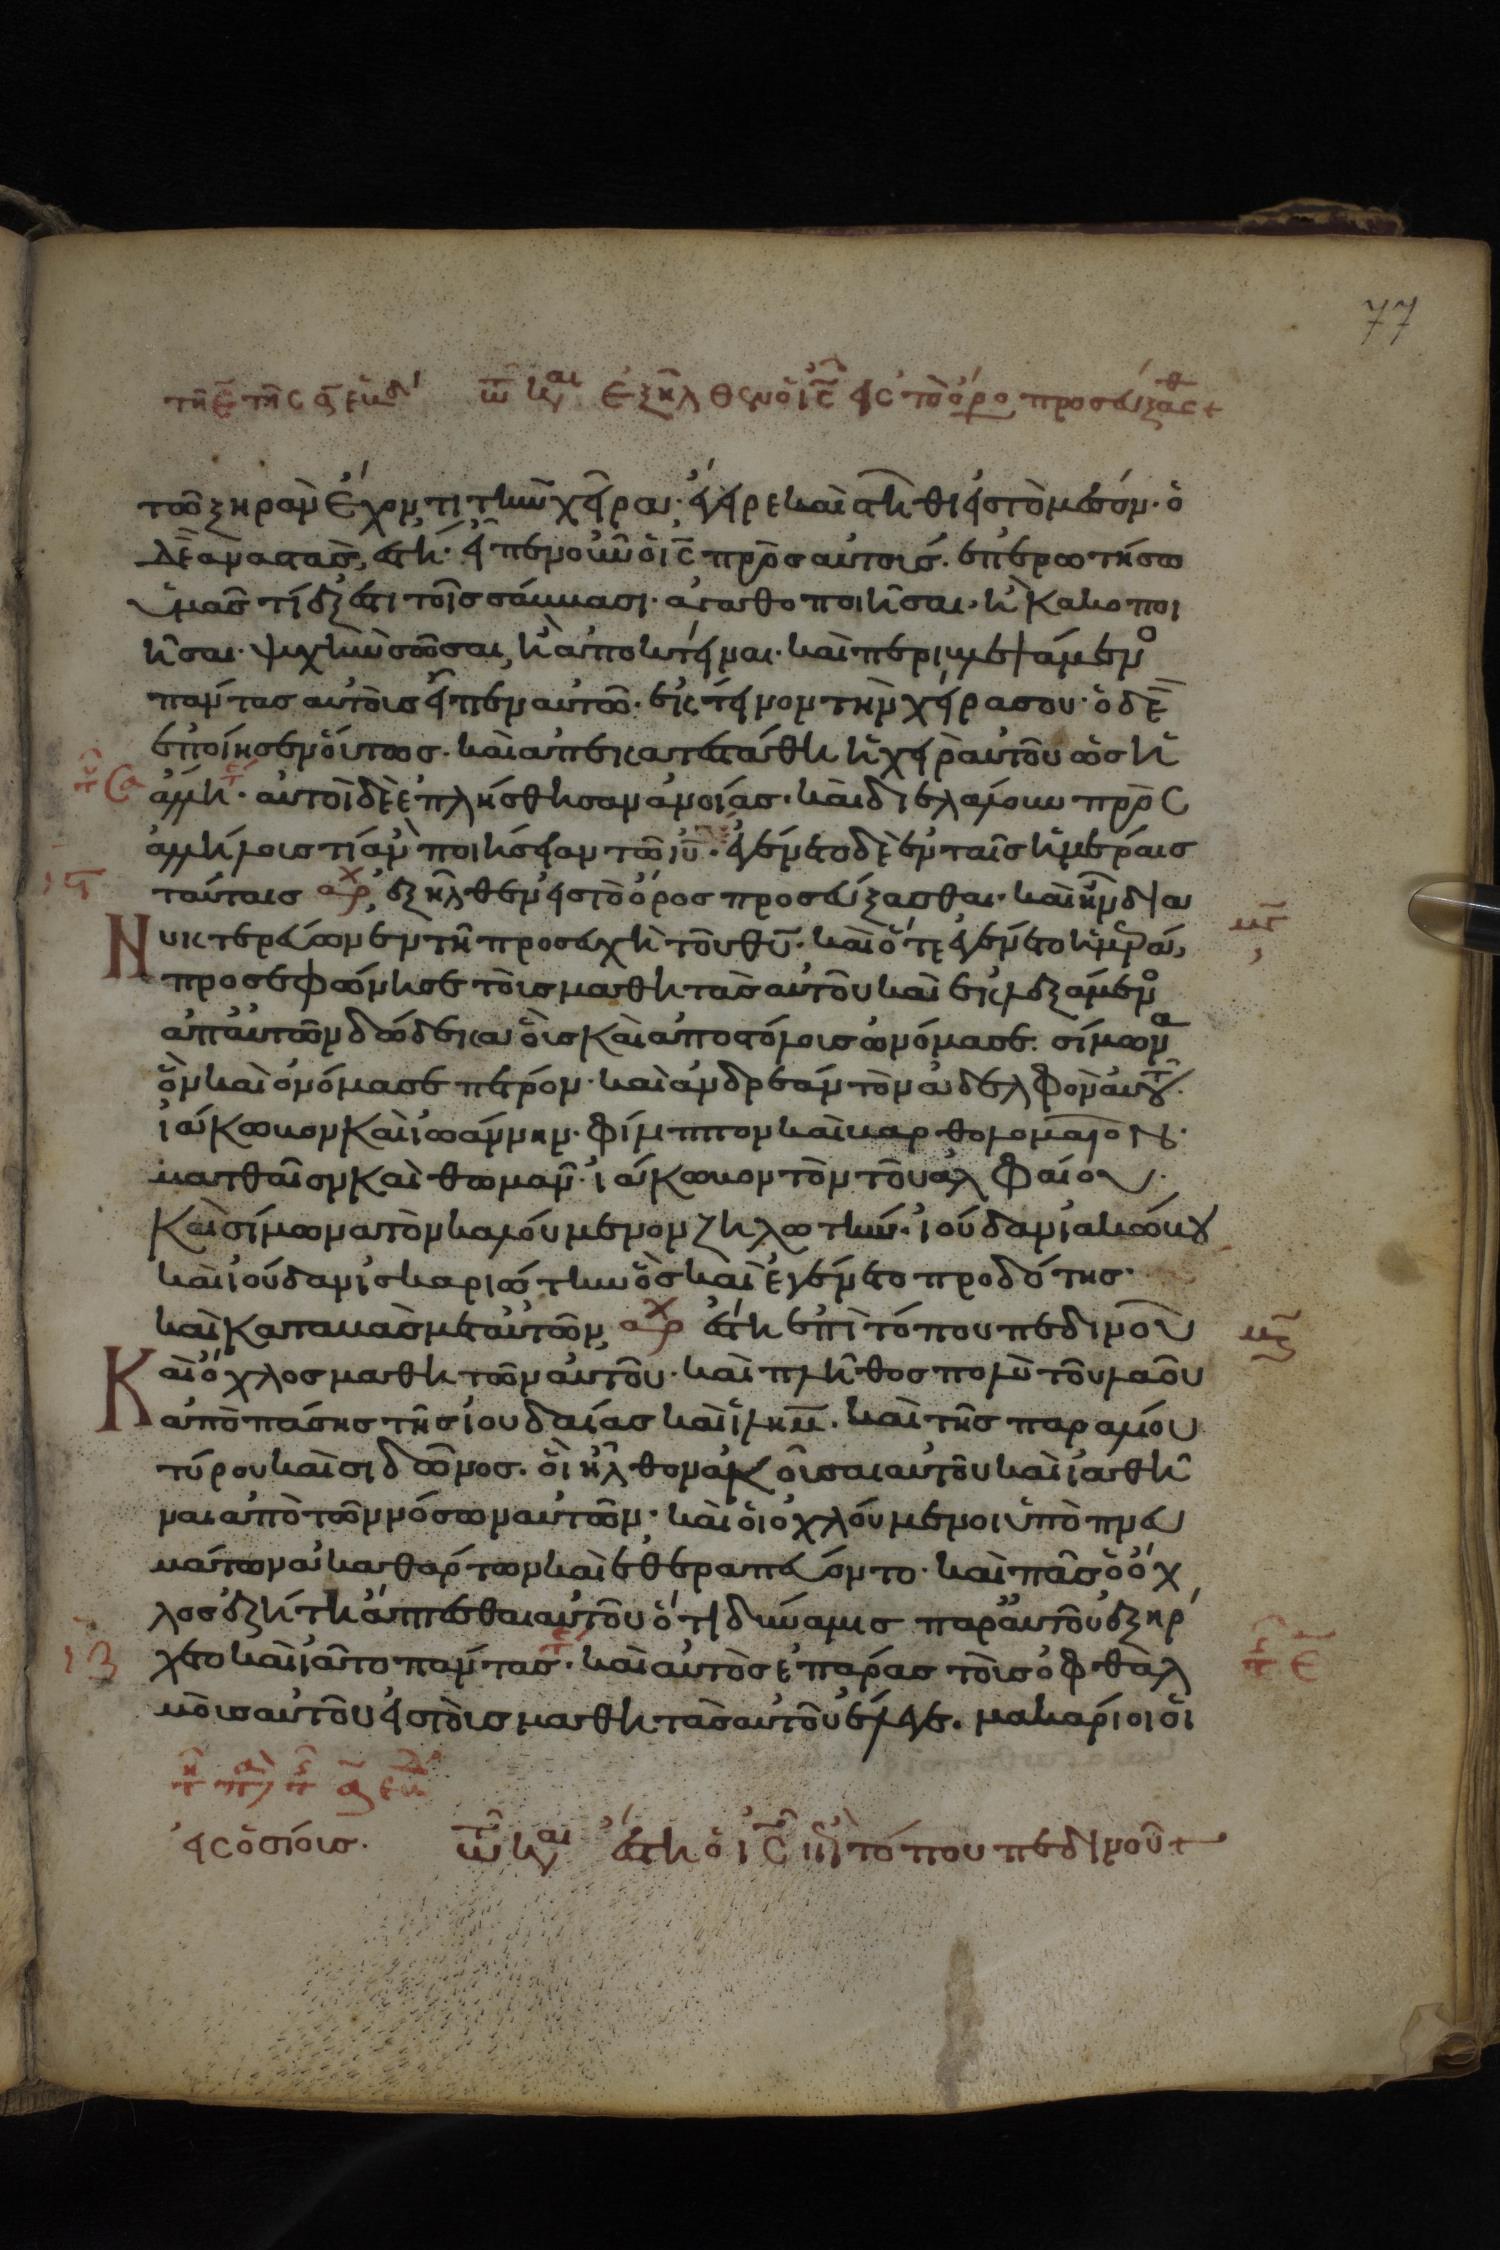 77
τῆ ε̄ τῆς ᾱ ἑβδ τῶ κ αι ἐξῆλθεν ὁ ις̄ εἰς τὸ ὄρο προσεύξασθ +
τῶ ξηρὰν ἔχοντι τὴν χεῖρα· ἔγειρε καὶ στῆθι εἰς τὸ μέσον· ὁ
δὲ ἀναστὰς, ἔστη· εἶπεν οὖν ὁ ις̄ πρὸς αὐτούς· ἐπερωτήσω
ὑμᾶς τί ἔξεστι τοῖς σάββασι· ἀγαθοποιῆσαι· ἢ κακοποι
ῆσαι· ψυχὴν σῶσαι, ἢ ἀποκτεῖναι· καὶ περιβλεψάμενο
πάντας αὐτοὺς εἶπεν αὐτῶ· ἔκτεινον τὴν χεῖρα σου· ὁ δὲ
ἐποίησεν οὕτως· καὶ ἀπεκατεστάθη ἡ χεὶρ αὐτοῦ ὡς ἡ
ἄλλη· αὐτοὶ δὲ ἐπλήσθησαν ἀνοίας· καὶ διελάλουν πρὸς
ἀλλήλους τί ἂν ποιήσειαν τῶ ιῡ· ἐγένετο δὲ ἐν ταῖς ἡμέραις
ταύταις αρχ, ἐξῆλθεν εἰς τὸ ὄρος προσεύξασθαι· καὶ ἦν δια
νυκτερεύων ἐν τῆ προσευχῆ τοῦ θῡ· καὶ ὅτε ἐγένετο ἡμέρα,
προσεφώνησε τοὺς μαθητὰς αὐτοῦ καὶ ἐκλεξάμενο
ἀπ' αὐτῶν δώδεκα οὓς καὶ ἀποστόλους ὠνόμασε· σίμωνα
ὃν καὶ ὀνόμασε πέτρον· καὶ ἀνδρέαν τὸν ἀδελφὸν αὐτοῦ·
ἰάκωβον καὶ ἰωάννην· φίλιππον καὶ βαρθολομαῖον·
ματθαῖον καὶ θωμᾶν· ἰάκωβον τὸν τοῦ ἀλφαίου·
καὶ σίμωνα τὸν καλούμενον ζηλωτὴν· ἰούδαν ἰακώβου
καὶ ἰούδαν ἰσκαριώτην ὃς καὶ ἐγένετο προδότης·
καὶ καταβὰς μετ' αὐτῶν, αρχ ἔστη ἐπὶ τόπου πεδινοῦ
καὶ ὄχλος μαθητῶν αὐτοῦ· καὶ πλῆθος πολὺ τοῦ λαοῦ
ἀπὸ πάσης τῆς ἰουδαίας καὶ ἱλημ̄· καὶ τῆς παραλίου
τύρου καὶ σιδῶνος· οἳ ἦλθον ἀκοῦσαι αὐτοῦ καὶ ἰαθῆ
ναι ἀπὸ τῶν νόσων αὐτῶν· καὶ οἱ ὀχλούμενοι ὑπὸ πνευ
μάτων ἀκαθάρτων καὶ ἐθεραπεύοντο· καὶ πᾶς ὁ ὄχ
λος ἐζήτη ἅπτεσθαι αὐτοῦ ὅτι δύναμις παρ' αὐτοῦ ἐξήρ
χετο καὶ ἰᾶτο πάντας· καὶ αὐτὸς ἐπάρας τοὺς ὀφθαλ
μοὺς αὐτοῦ εἰς τοὺς μαθητὰς αὐτοῦ ἔλεγε· μακάριοι οἱ
εἰς ὁσίους· τῶ κ αι ἔστη ὁ ις̄ ἐπὶ τόπου πεδινοῦ +